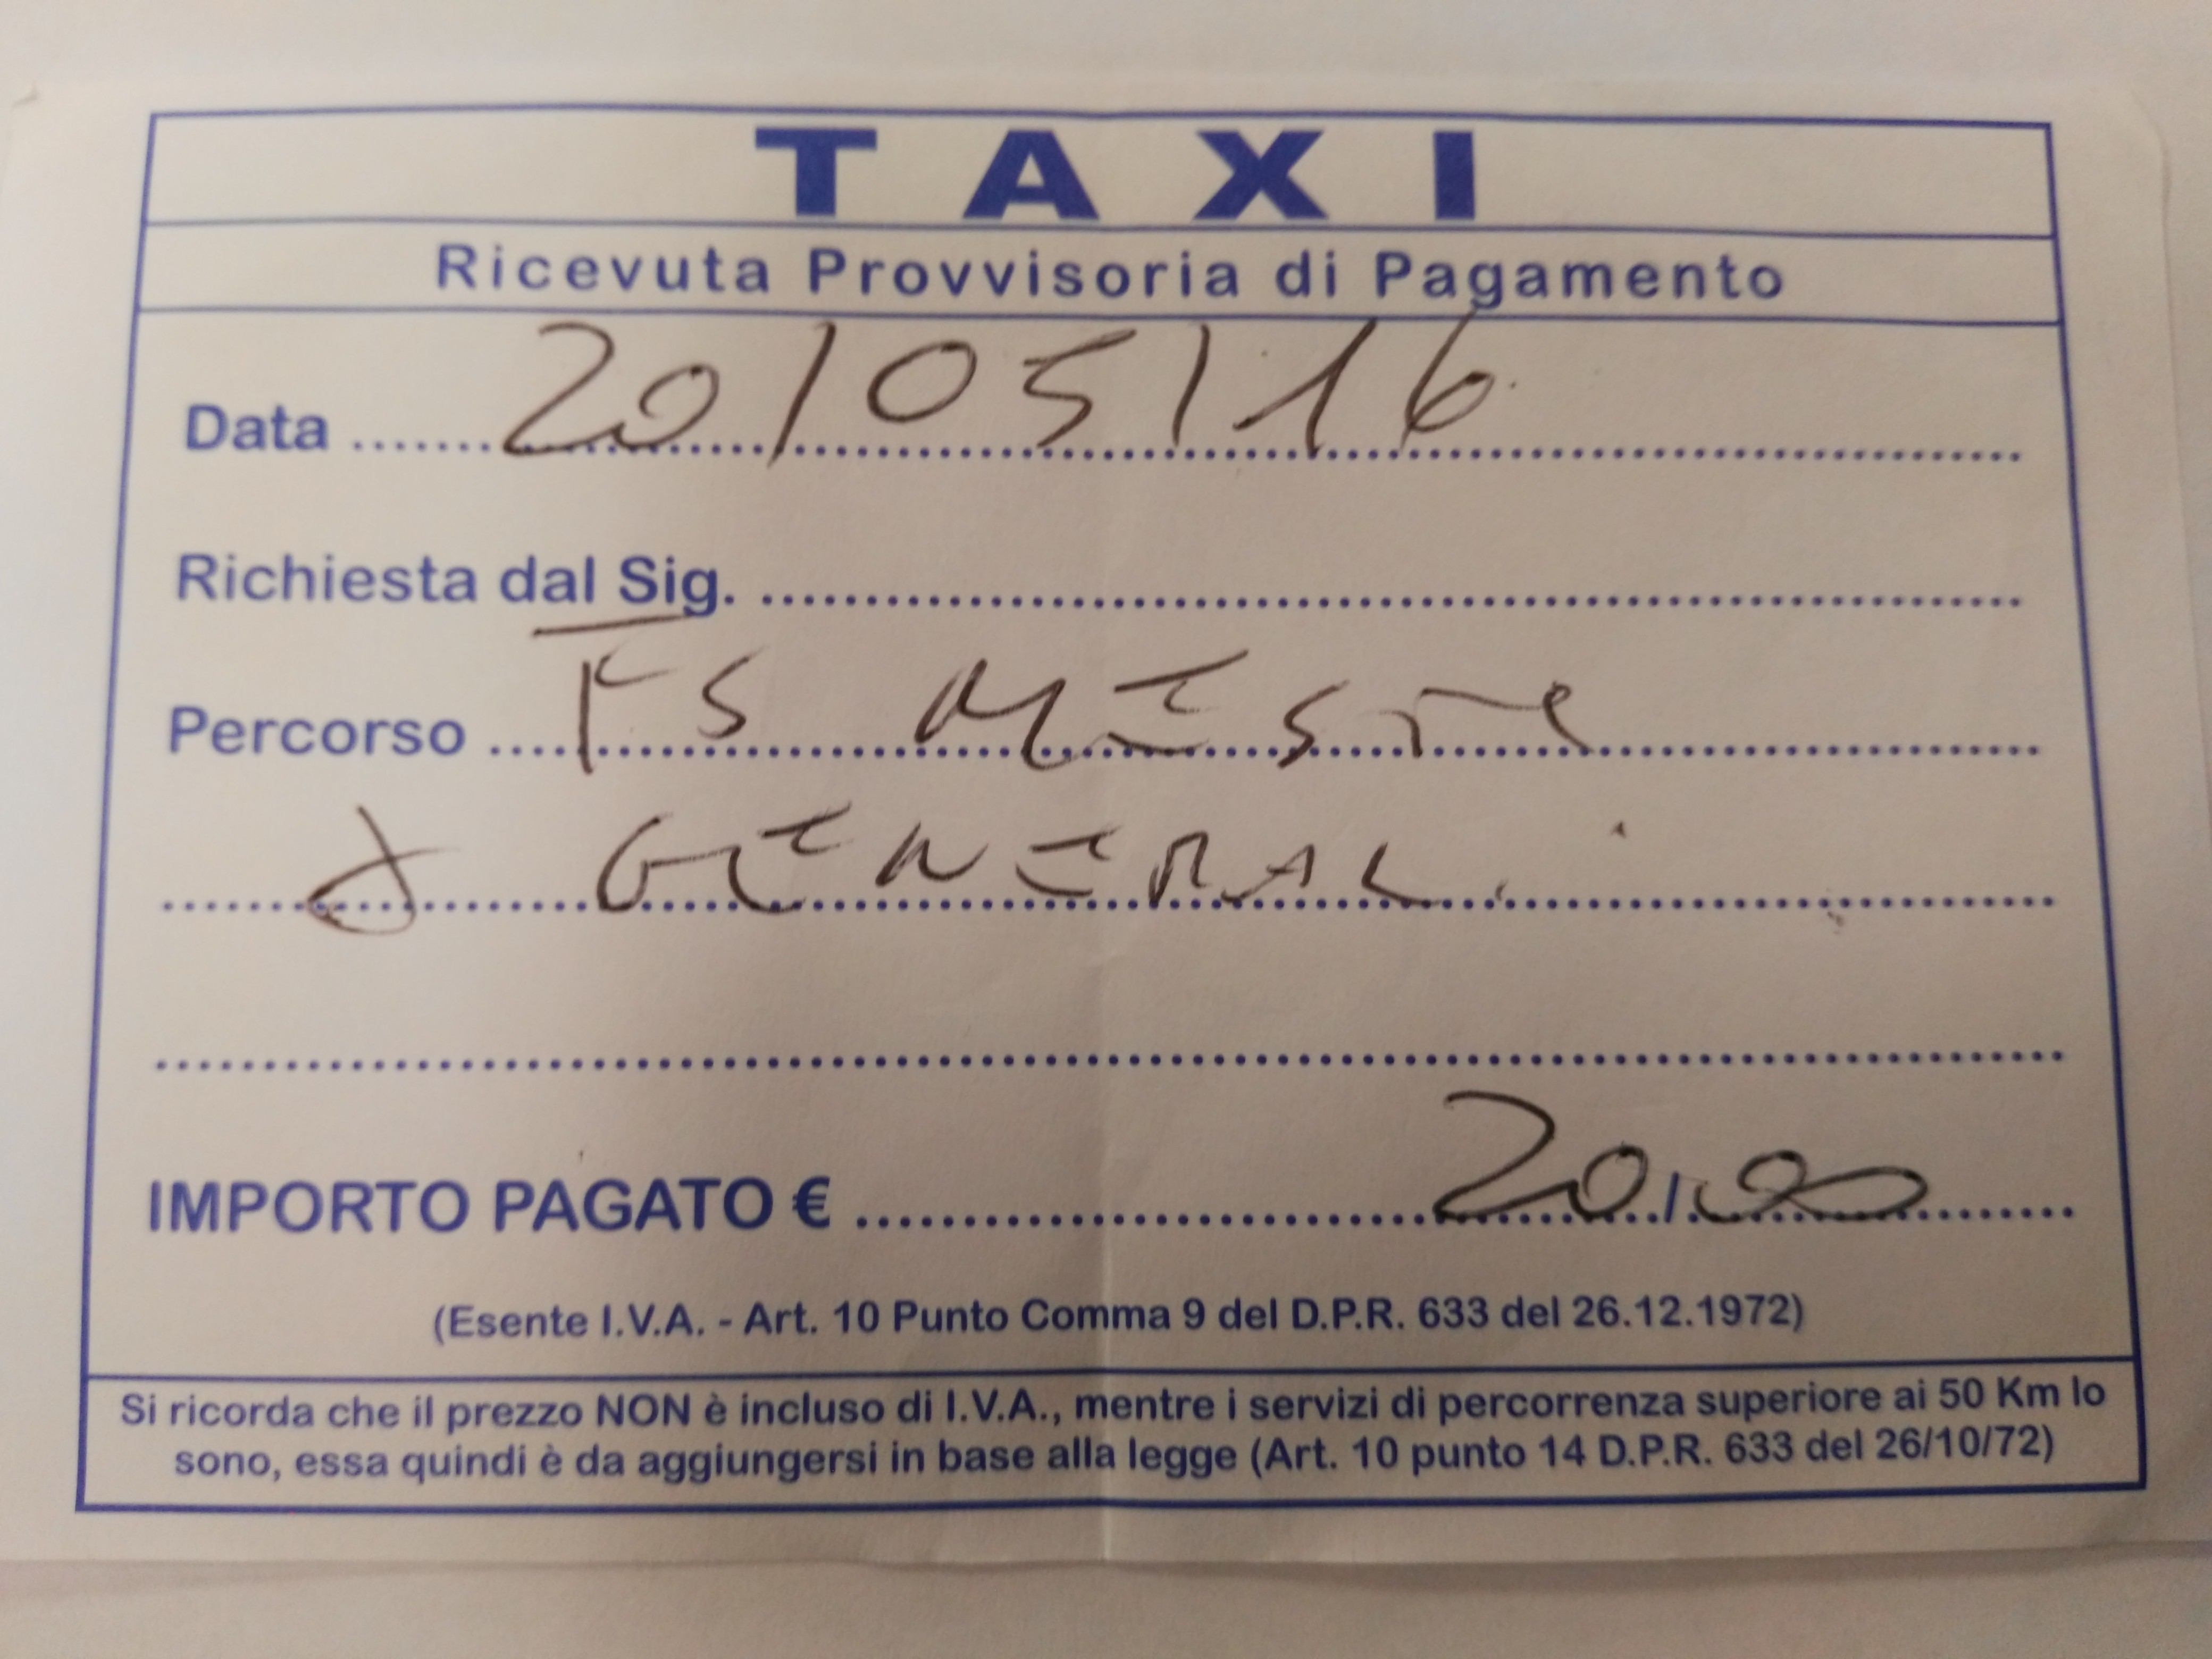 TAXI
Ricevuta Provvisoria di Pagamento
Data 20/05/16
Richiesta dal Sig.
Percorso FS MESTRE
X GENERALI
IMPORTO PAGATO € 20,00
(Esente I.V.A. - Art. 10 Punto Comma 9 del D.P.R. 633 del 26.12.1972)
Si ricorda che il prezzo NON è incluso di I.V.A., mentre i servizi di percorrenza superiore ai 50 Km lo
sono, essa quindi è da aggiungersi in base alla legge (Art. 10 punto 14 D.P.R. 633 del 26/10/72)